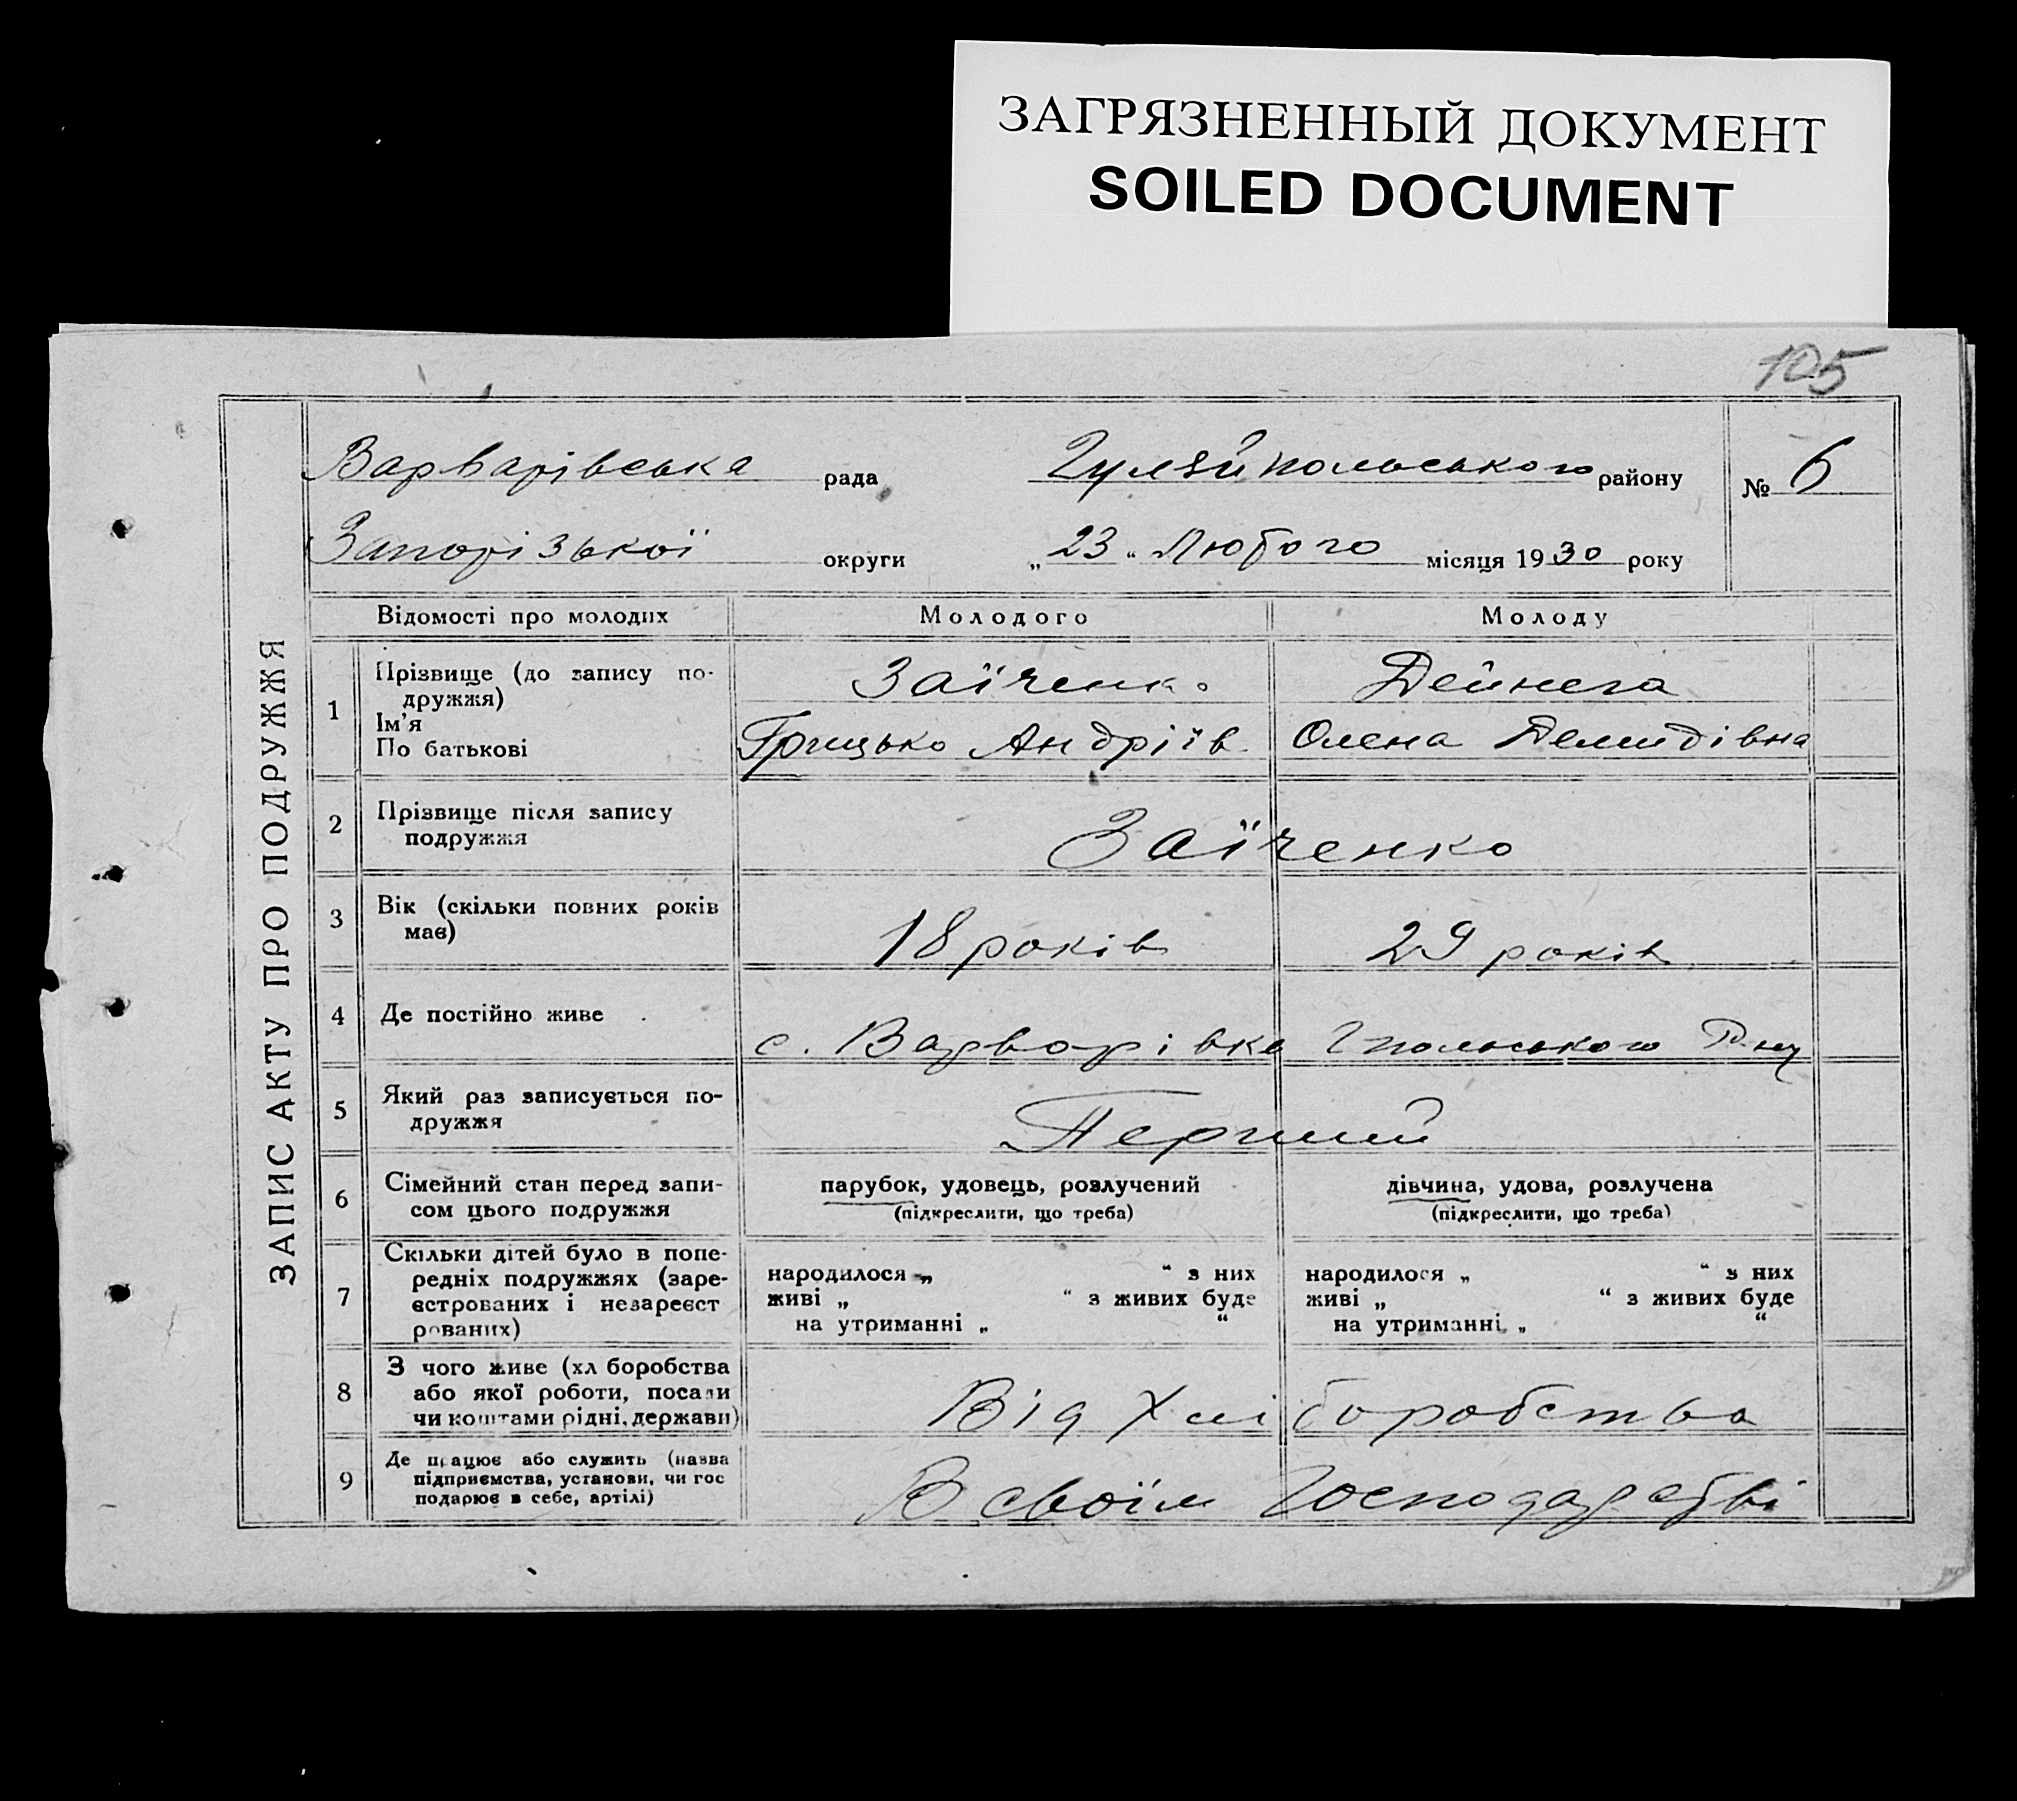 ЗАГРЯЗНЕННЫЙ ДОКУМЕНТ
SOILED DOCUMENT
105
ЗАПИС АКТУ ПРО ПОДРУЖЖЯ
Варварівська рада Гуляйпольського району № 6
Запорізької округи „ 23 “ Лютого місяця 1930 року
Відомості про молодих Молодого Молоду
1 Прізвище (до запису по-
дружжя) Заїченко Дейнега
Ім'я
По батькові Грицько Андріїв Олена Демидівна
2 Прізвище після запису
подружжя Заїченко
3 Вік (скільки повних років
має) 18 років 29 років
4 Де постійно живе с. Варворівка Гпольського Р-ну
5 Який раз записується по-
дружжя Перший
6 Сімейний стан перед запи-
сом цього подружжя
парубок, удовець, розлучений дівчина, удова, розлучена
(підкреслити, що треба) (підкреслити, що треба)
7 Скільки дітей було в попе-
редніх подружжях (заре-
єстрованих і незареєст
рованих)
народилося „ “ з них народилося „ “ з них
живі „ “ з живих буде живі „ “ з живих буде
на утриманні „ “ на утриманні „ “
8 З чого живе (хл боробства
або якої роботи, посади
чи коштами рідні, держави) Від Хліборобства
9 Де працює або служить (назва
підприємства, установи, чи гос
подарює в себе, артілі) В своїм Господарстві